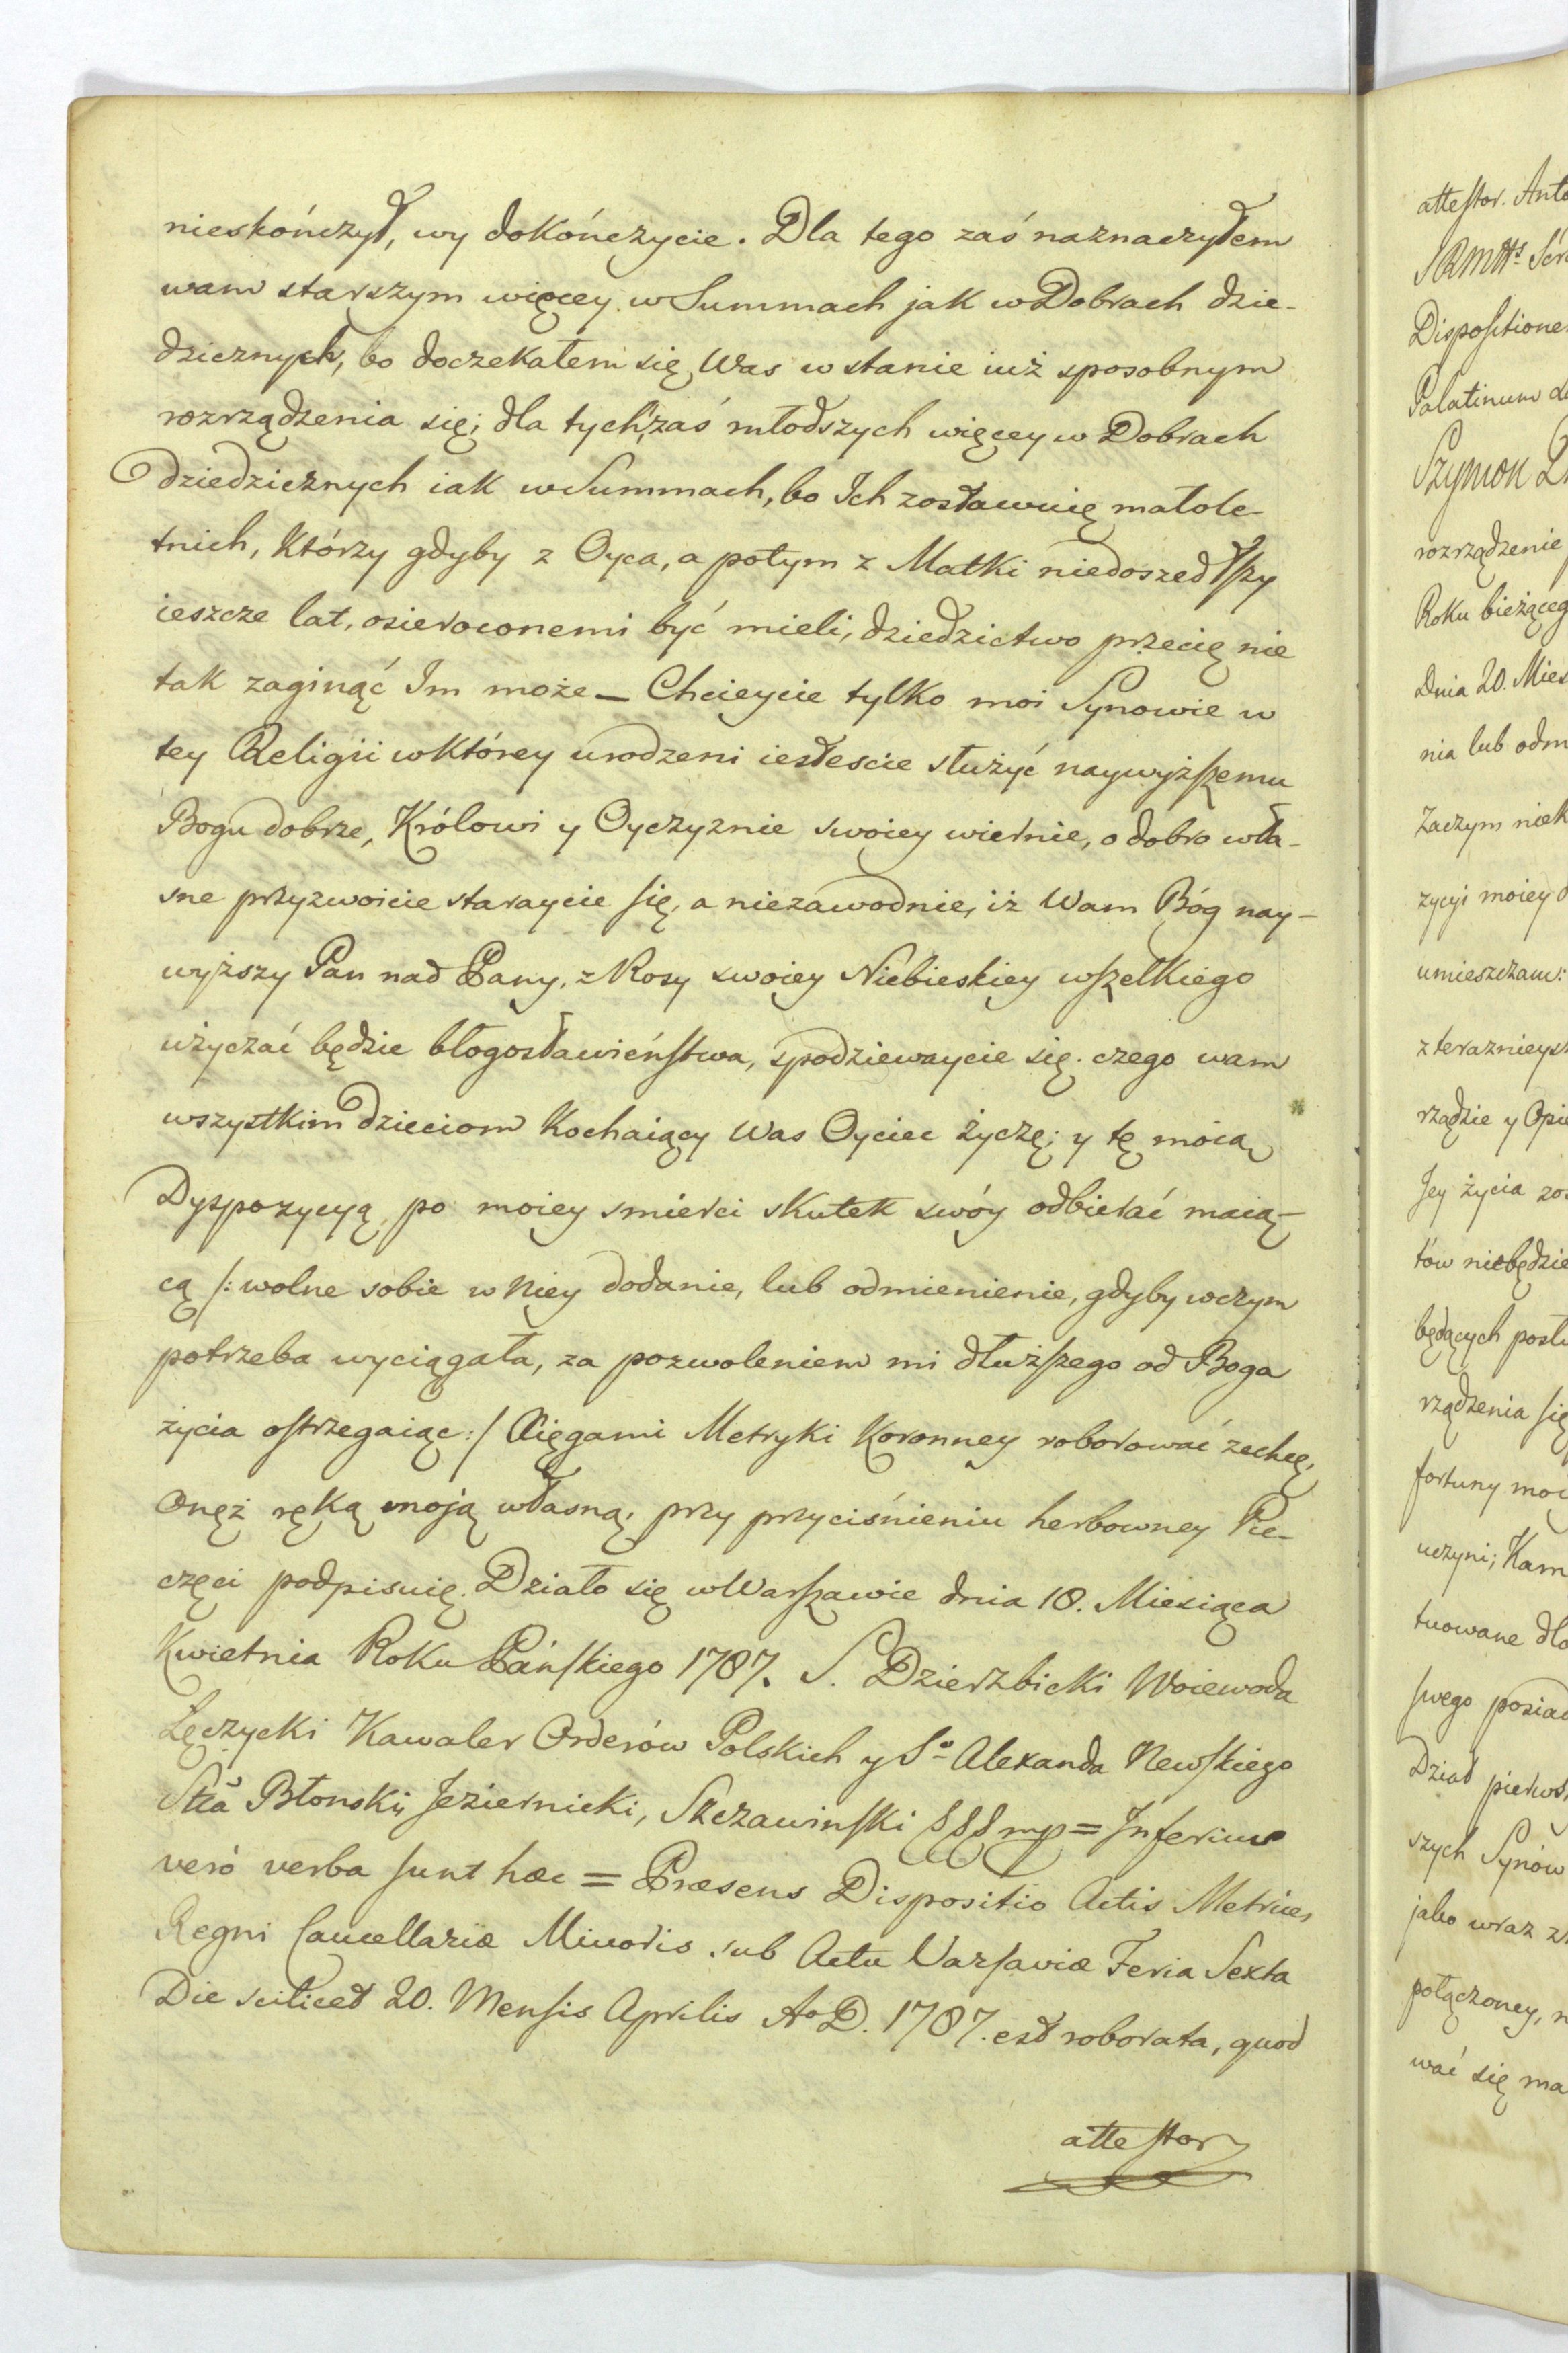 nieskończył, wy dokończycie. Dla tego zaś naznaczyłem
wam starszym więcey w Summach jak w Dobrach dzie-
dzicznych, bo doczekałem się Was w stanie iuż sposobnym
rozrządzenia się; dla tych zaś młodszych więcey w Dobrach
dziedzicznych iak w Summach, bo Ich zosławuię małole-
tnich, Którzy gdyby z Oyca, a potym z Matki niedoszedłszy
ieszcze lat, osieroconemi być mieli, dziedzictwo przecię nie
tak zaginąć Im może – Chcieycie tylko moi Synowie w
tey Religii w Którey urodzeni iesteście służyć naywyższemu
Bogu dobrze, Królowi y Oyczyznie swoiey wiernie, o dobro wła-
sne przyzwoicie staraycie się, a niezawodnie, iż Wam Bóg nay-
wyższy Pan nad Pany, z Rosy swoiey Niebieskiey wszelkiego
użyczać będzie błogosławieństwa, spodziewaycie się. czego wam
wszystkim dzieciom Kochaiący Was Oyciec życzę; y tę moią
Dyspozycyą, po moiey smierci skutek swóy odbierać maią-
cą /: wolne sobie w Niey dodanie, lub odmienienie, gdyby w czym
potrzeba wyciągała, za pozwoleniem mi dłuższego od Boga
życia ostrzegaiąc :/ Xięgami Metryki Koronney roborować zechcę,
Onęż ręką moją własną, przy przyciśnieniu herbowney Pie-
częci podpisuię. Działo się w Warszawie dnia 18. Miesiąca
Kwietnia Roku Pańskiego 1787. S. Dzierzbicki Woiewoda
Łęczycki Kawaler Orderów Polskich y So Alexanda Newskiego
Stta Błonski Jeziernicki, Szczawinski SSS mp = Inferius
veró verba sunt hæc = Præsens Dispositio Actis Metrices
Regni Cancellariæ Minoris sub Actu Varsaviæ Feria Sexta
Die scilicet 20. Mensis Aprilis Ao D. 1787. est roborata, quod
attestor
attestor. Anto
Dispositione
Palatinum
Szymon
rozrządzenie
Roku bieżąceg
dnia 20. Mies
nia lub odm
Zaczym niek
zycyi moiey
umieszczam:
z teraznieysz
rządzie y Opie
Jey życia zos
tów niebędzie
będących posłu
rządzenia się
fortuny moi
uczyni; Kam
tuowane dla
swego posiad
Dział pierwsz
szych Synów
jako wraz z
połączoney, n
wać się ma